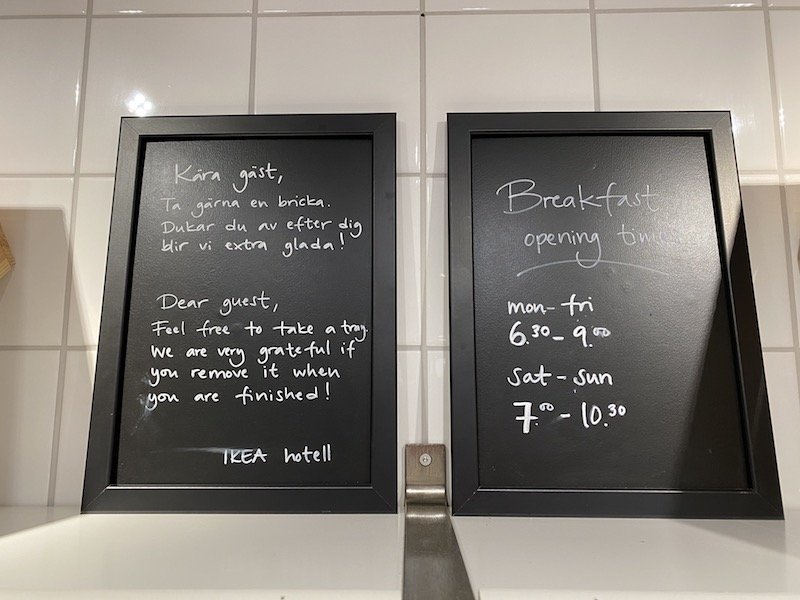 Kära gäst,
Ta gärna en bricka.
Dukar du av efter dig
blir vi extra glada!
Dear guest,
Feel free to take a tray.
We are very grateful if
you remove it when
you are finished!
IKEA hotell
Breakfast
opening times
mon-fri
6.30-9.00
Sat-sun
7.00-10.30